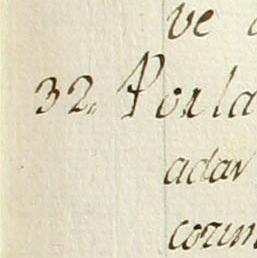 ve
32. Porla
adar
corim